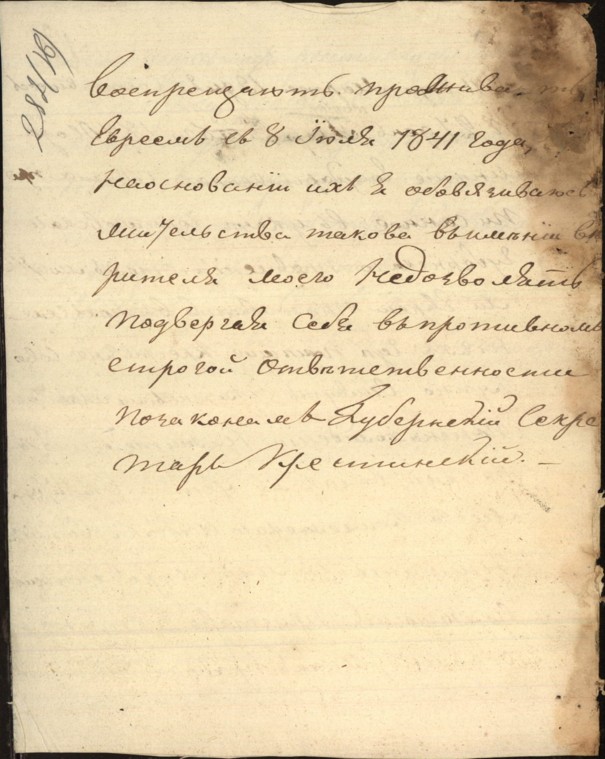 284/19
Воспрещають прожива-ть
Евреемъ съ 8 Іюля 1841 года,
наоснованіи ихъ я обѣвязиваюсь
жительства такова въименіи вѣ
рителя моего недозволять
подвергая себя въпротивномъ
строгой отвѣтственности
позаконамъ Губернскій Секре
тарь Крестинскій. —